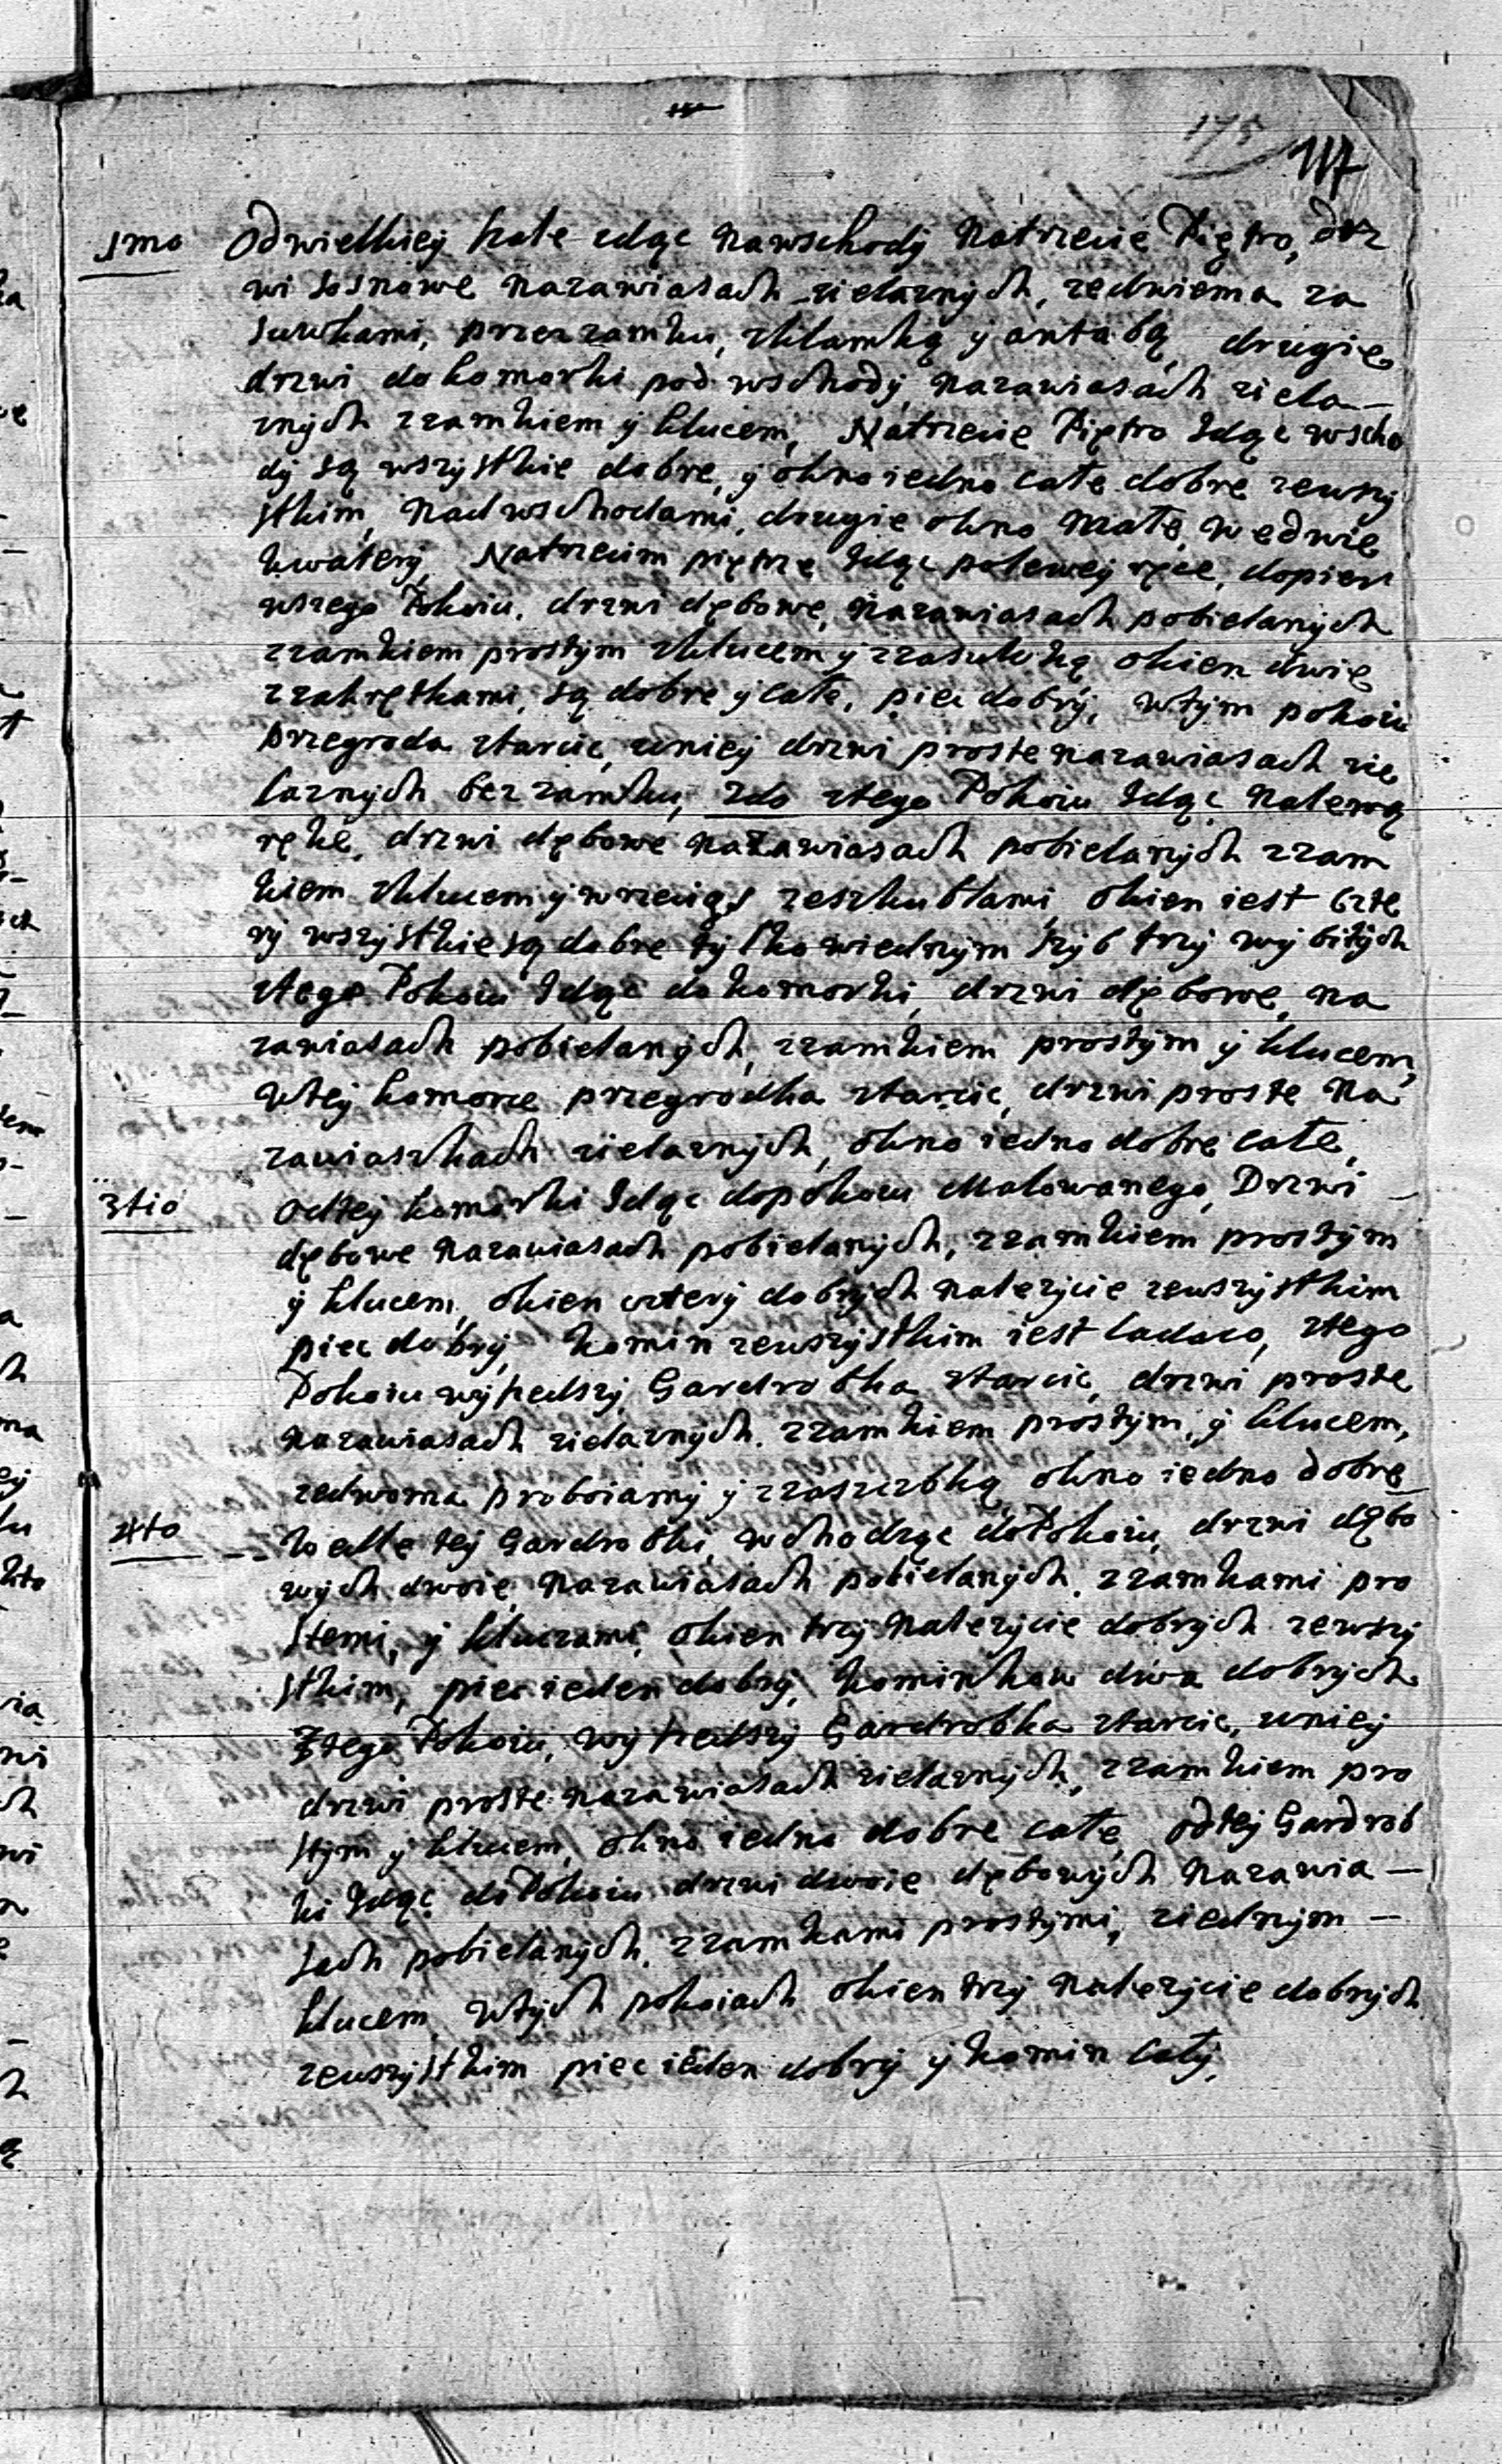 175
117
1mo Od wielkiey Sale idąc na wschody na trzecie Piętro, drz
wi sosnowe na zawiasach zielaznych, ze dwiema za
suwkami, przez zamku, z klamką y antabą, drugie
drzwi do komorki pod wschody, na zawiasach ziela—
znych z zamkiem y klucem, Na trzecie Piętro Idąc wscho
dy są wszystkie dobre, y okno iedno całe dobre zewszy
stkim, nad wschodami, drugie okno Małe, we dwie
kwatery, Na trzecim piętrze Idąc po lewey ręce, do pier
wszego Pokoiu, drzwi dębowe, na zawiasach pobielanych
z zamkiem prostym z klucem y z zasuwką okien dwie
z zakrętkami, są dobre y całe, piec dobry, w tym pokoiu
przegroda z tarcic, w niey drzwi proste na zawiasach zie
laznych bez zamku, 2do z tego Pokoiu Idąc na lewą
rękę, drzwi dębowe na zawiasach pobielanych z zam
kiem z klucem y wrzeciąs ze szkublami, okien iest czte
ry wszystkie są dobre tylko w iednym szyb trzy wybitych
z tego Pokoiu Idąc do komorki, drzwi dębowe, na
zawiasach pobielanych, z zamkiem prostym y klucem,
w tey komorce przegrodka z tarcic, drzwi proste na
zawiaskach zielaznych, okno iedno dobre całe,
3tio Od tey komorki Idąc do pokoiu Malowanego, Drzwi —
dębowe na zawiasach pobielanych, z zamkiem prostym
y klucem, okien cztery dobrych należycie zewszystkim
piec dobry, komin zewszystkim iest ladaco, z tego
Pokoiu wyszedszy Gardrobka z tarcic, drzwi proste
na zawiasach zielaznych z zamkiem prostym, y klucem,
ze dwoma proboiamy y z zaszczobką okno iedno dobre
4to — Wedle tey Gardrobki, wchodząc do Pokoiu, drzwi dębo
wych dwoie, na zawiasach pobielanych, z zamkami pro
stemi, y kluczami, okien trzy należycie dobrych zewszy
stkim, piec ieden dobry, kominkow dwa dobrych
Z tego Pokoiu, wyszedszy Gardrobka z tarcic, w niey
drzwi proste na zawiasach zielaznych, z zamkiem pro
stym y klucem, okno iedno dobre całe, od tey Gardrob
ki Idąc do Pokoiu drzwi dwoie dębowych na zawia—
sach pobielanych, z zamkami prostymi, z iednym —
klucem, w tych pokoiach okien trzy należycie dobrych
zewszystkim piec ieden dobry y komin cały,